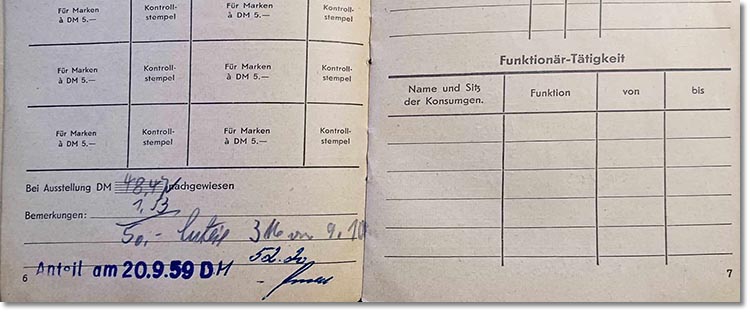 Für Marken à DM 5.— Kontroll-stempel Für Marken à DM 5.— Kontroll-stempel
Für Marken à DM 5.— Kontroll-stempel Für Marken à DM 5.— Kontroll-stempel
Für Marken à DM 5.— Kontroll-stempel Für Marken à DM 5.— Kontroll-stempel
Bei Ausstellung DM 48,47 nachgewiesen
Bemerkungen: 1,53
50,-
52.20
Anteil am 20.9.59 DM
6
Funktionär-Tätigkeit
Name und Sitz der Konsumgen. Funktion von bis
7